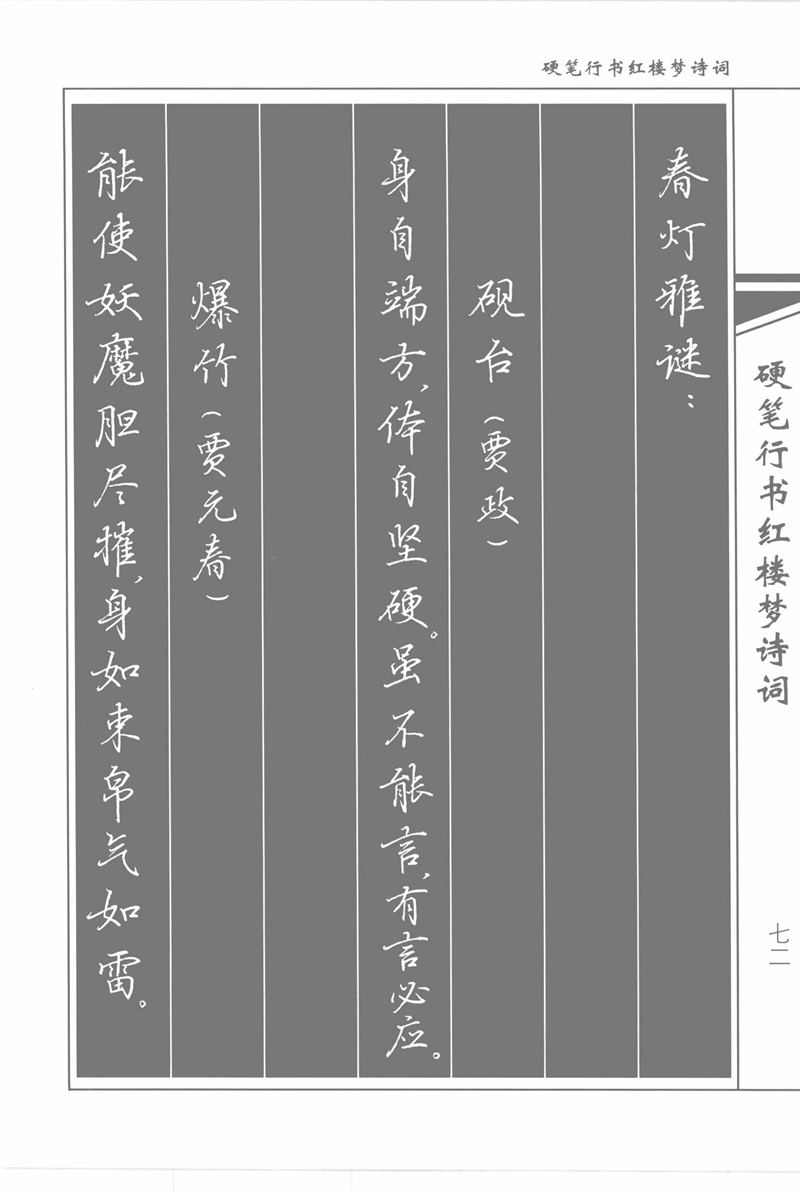 硬笔行书红楼梦诗词
春灯雅谜：
砚台（贾政）
身自端方，体自坚硬。虽不能言，有言必应。
爆竹（贾元春）
能使妖魔胆尽摧，身如束帛气如雷。
硬笔行书红楼梦诗词
七二